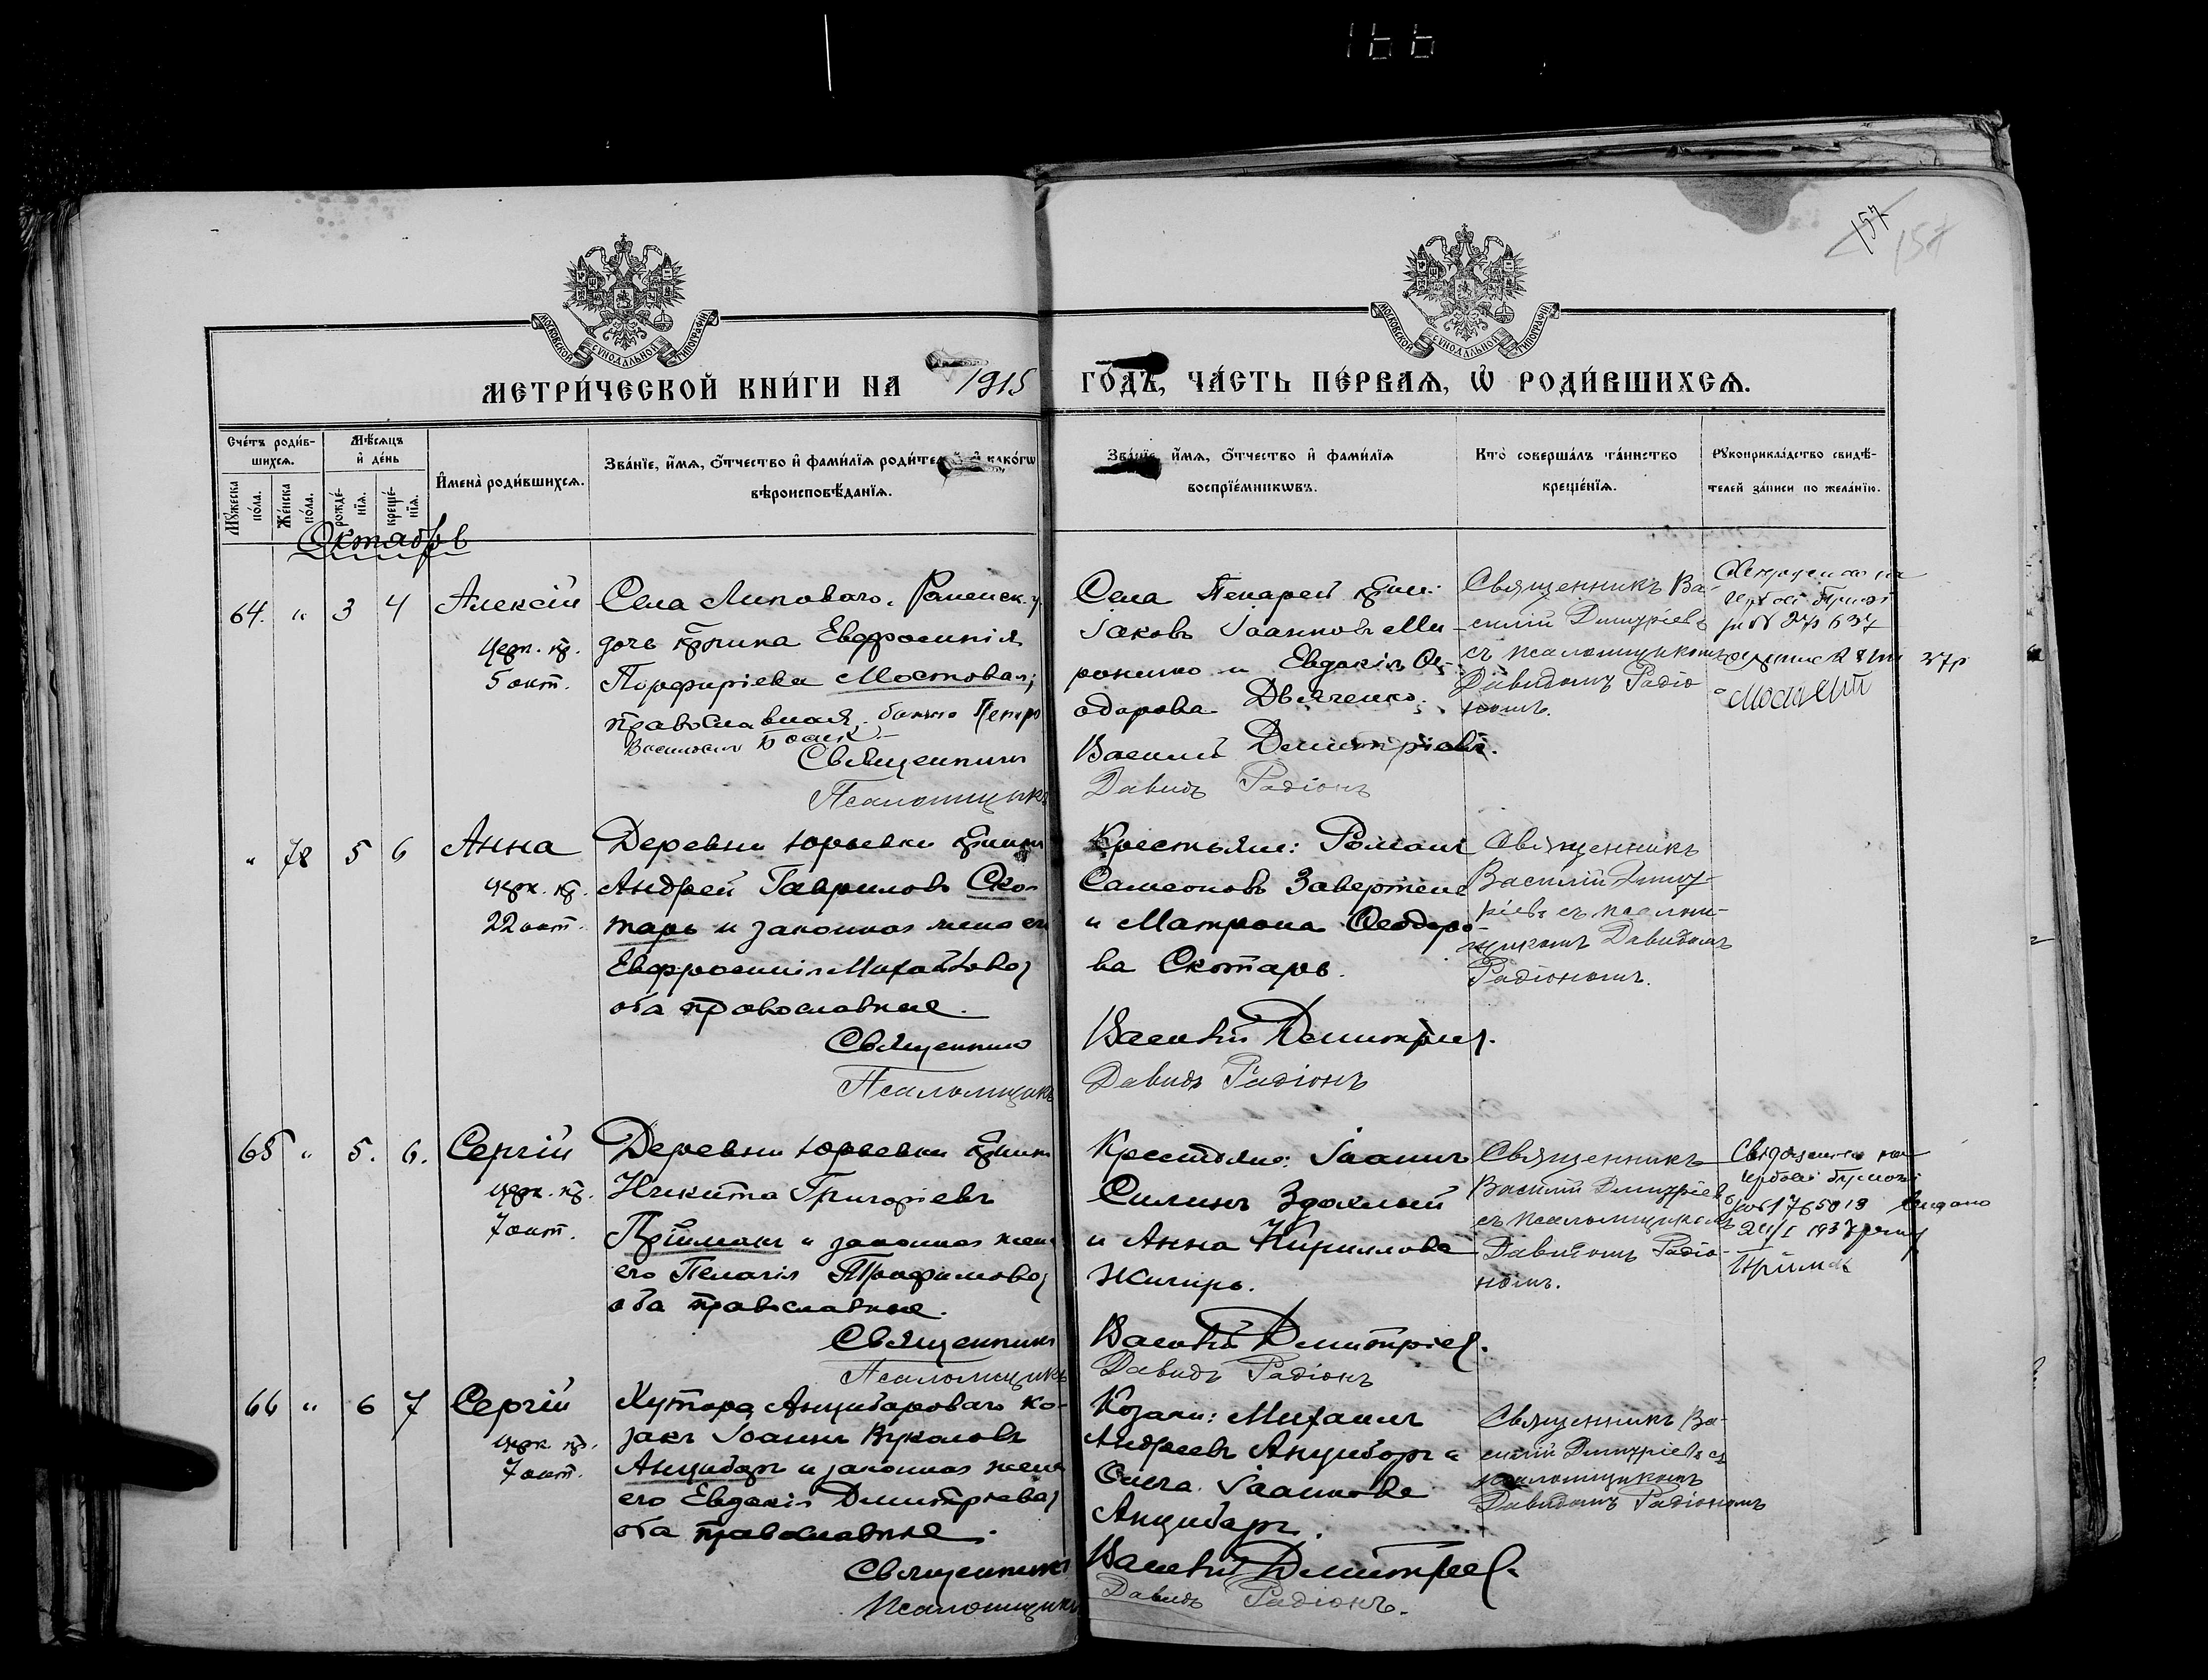 166
157
157
МОСКОВСКОЙ СѴНОДАЛЬНОЙ ТИПОГРАФІИ
МОСКОВСКОЙ СѴНОДАЛЬНОЙ ТИПОГРАФІИ
МЕТРИ́ЧЕСКОЙ КНИ́ГИ НА 1915 ГО́ДЪ, ЧА́СТЬ ПЕ́РВАѦ, Ѡ҆ РОДИ́ВШИХСѦ.
Сче́тъ роди́вшихсѧ.
Мꙋ́жеска по́ла.
Же́нска по́ла.
Мѣ́сѧцъ и҆ де́нь
рожде́нїѧ.
креще́нїѧ.
И҆мена̀ роди́вшихсѧ.
Зва́нїе, и҆́мѧ, ѻ҆́тчество и҆ фами́лїѧ роди́телей, и҆ како́гѡ
вѣроисповѣ́данїѧ.
Зва́нїе, и҆́мѧ, ѻ҆́тчество и҆ фами́лїѧ
воспрїе́мникѡвъ.
Кто̀ соверша́лъ та́инство
креще́нїѧ.
Рꙋкоприкла́дство свидѣ́-
телей за́писи по жела́нїю.
Октябрь
64. " 3 4
Алексій
церк. кр.
5 окт.
Села Липоваго, Роменск. у.
дочь крнина Евфросинія
Порфиріева Мостовая;
православная.
Священникъ
Псаломщикъ
Села Пекарей крни:
Іаковъ Іоанновъ Ми-
роненко и Евдокія Ѳе-
одорова Дьяченко.
Василій Димитріевъ.
Давидъ Радіонъ
Священникъ Ва-
силій Димитріевъ
съ псаломщикомъ
Давидомъ Радіо-
номъ.
" 78 5 6
Анна
церк. кр.
22 окт.
Деревни Юрьевки крнин
Андрей Гавриловъ Ско-
тарь и законная жена его
Евфросинія Михайлова;
оба православные.
Священник
Псаломщикъ
Крестьяне: Романъ
Самсоновъ
и Матрона Ѳеодоро-
ва Скотарь.
Василій Димитріев.
Давидъ Радіонъ
Священникъ
Василій Димит-
ріевъ съ псалом-
щикомъ Давидомъ
Радіономъ.
65 " 5. 6.
Сергій
церк. кр.
7 окт.
Деревни Юрьевки крнин
Никита Григоріевъ
Прійманъ и законная жена
его Пелагія Трофимова;
оба православные.
Священникъ
Псаломщикъ
Крестьяне: Іоаннъ
Силинъ
и Анна Кириллова
Василій Димитріев.
Давидъ Радіонъ
Священникъ
Василій Димитріевъ
съ псаломщикомъ
Давидомъ Радіо-
номъ.
66 " 6 7
Сергій
церк. кр.
7 окт.
Хутора Анцибароваго ко-
закъ Іоаннъ Вуколовъ
Анцибаръ и законная жена
его Евдокія Димитріева;
оба православные.
Священникъ
Псаломщикъ
Козаки: Михаилъ
Андреевъ Анциборъ и
Ольга Іоаннова
Анцибаръ.
Василій Димитріев.
Давидъ Радіонъ.
Священникъ Ва-
силій Димитріевъ съ
псаломщикомъ
Давидомъ Радіономъ